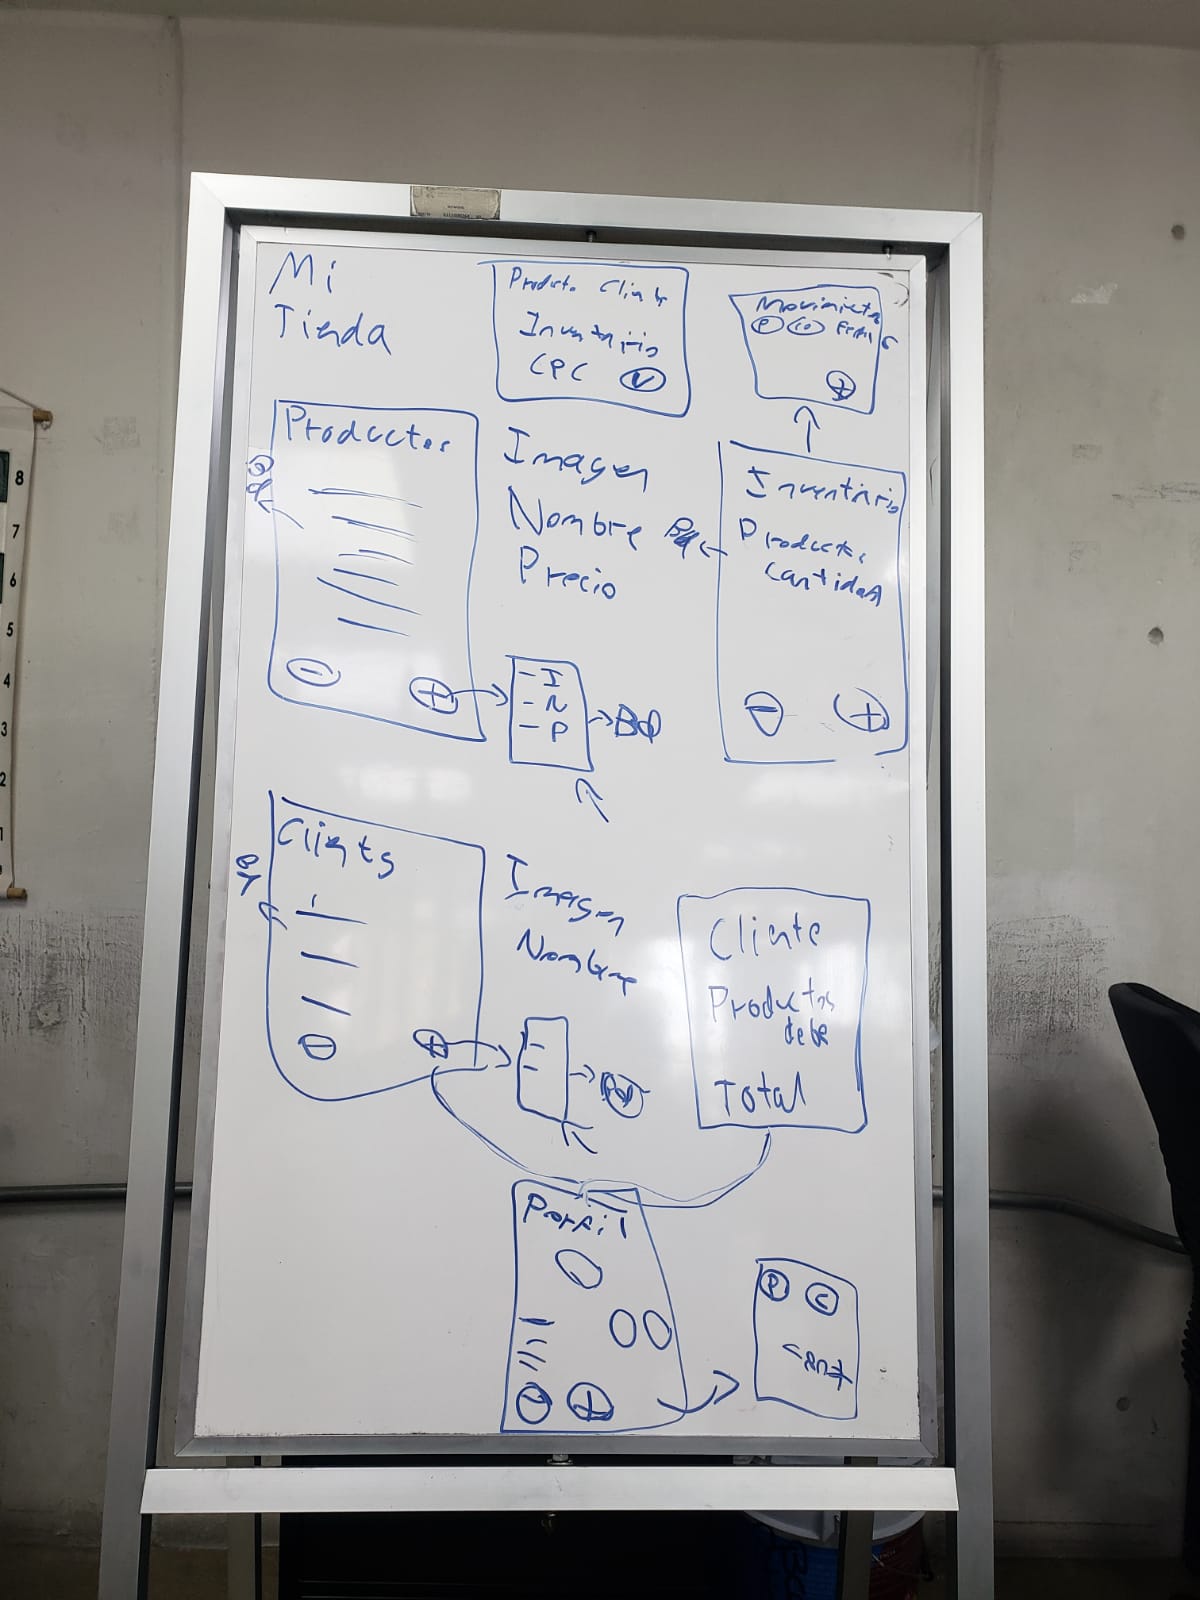 Mi
Tienda
Producto Clients
Inventario
CPC V
Movimiento
P Co
+
Productos
Imagen
Nombre
Precio
Inventario
Productos
Cantidad
- +
- I
- N
- P
Bd
- +
Clients
Imagen
Nombre
- +
Cliente
Productos
debe
Total
Perfil
- +
P C
Cant
8
7
6
5
4
3
2
1